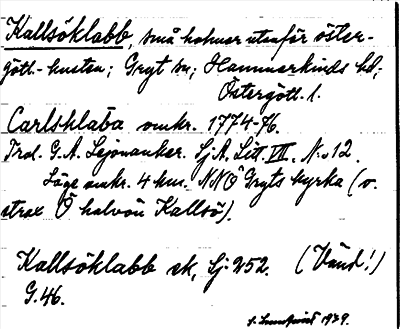 Kallsöklabb, små holmar utanför öster-
götl.-kusten; Gryt sn; Hammarkinds hd;
Östergötl. l.
Carlsklaba omkr. 1774-76.
Trol. G. A. Lejonanker. SjA, Litt VIII. N:o 12.
Läge omkr. 4 km. NNÖ Gryts kyrka (o.
strax Ö halvön Kallsö).
Kallsöklabb sk, Sj: 252. (Vänd!)
G. 46.
1939.